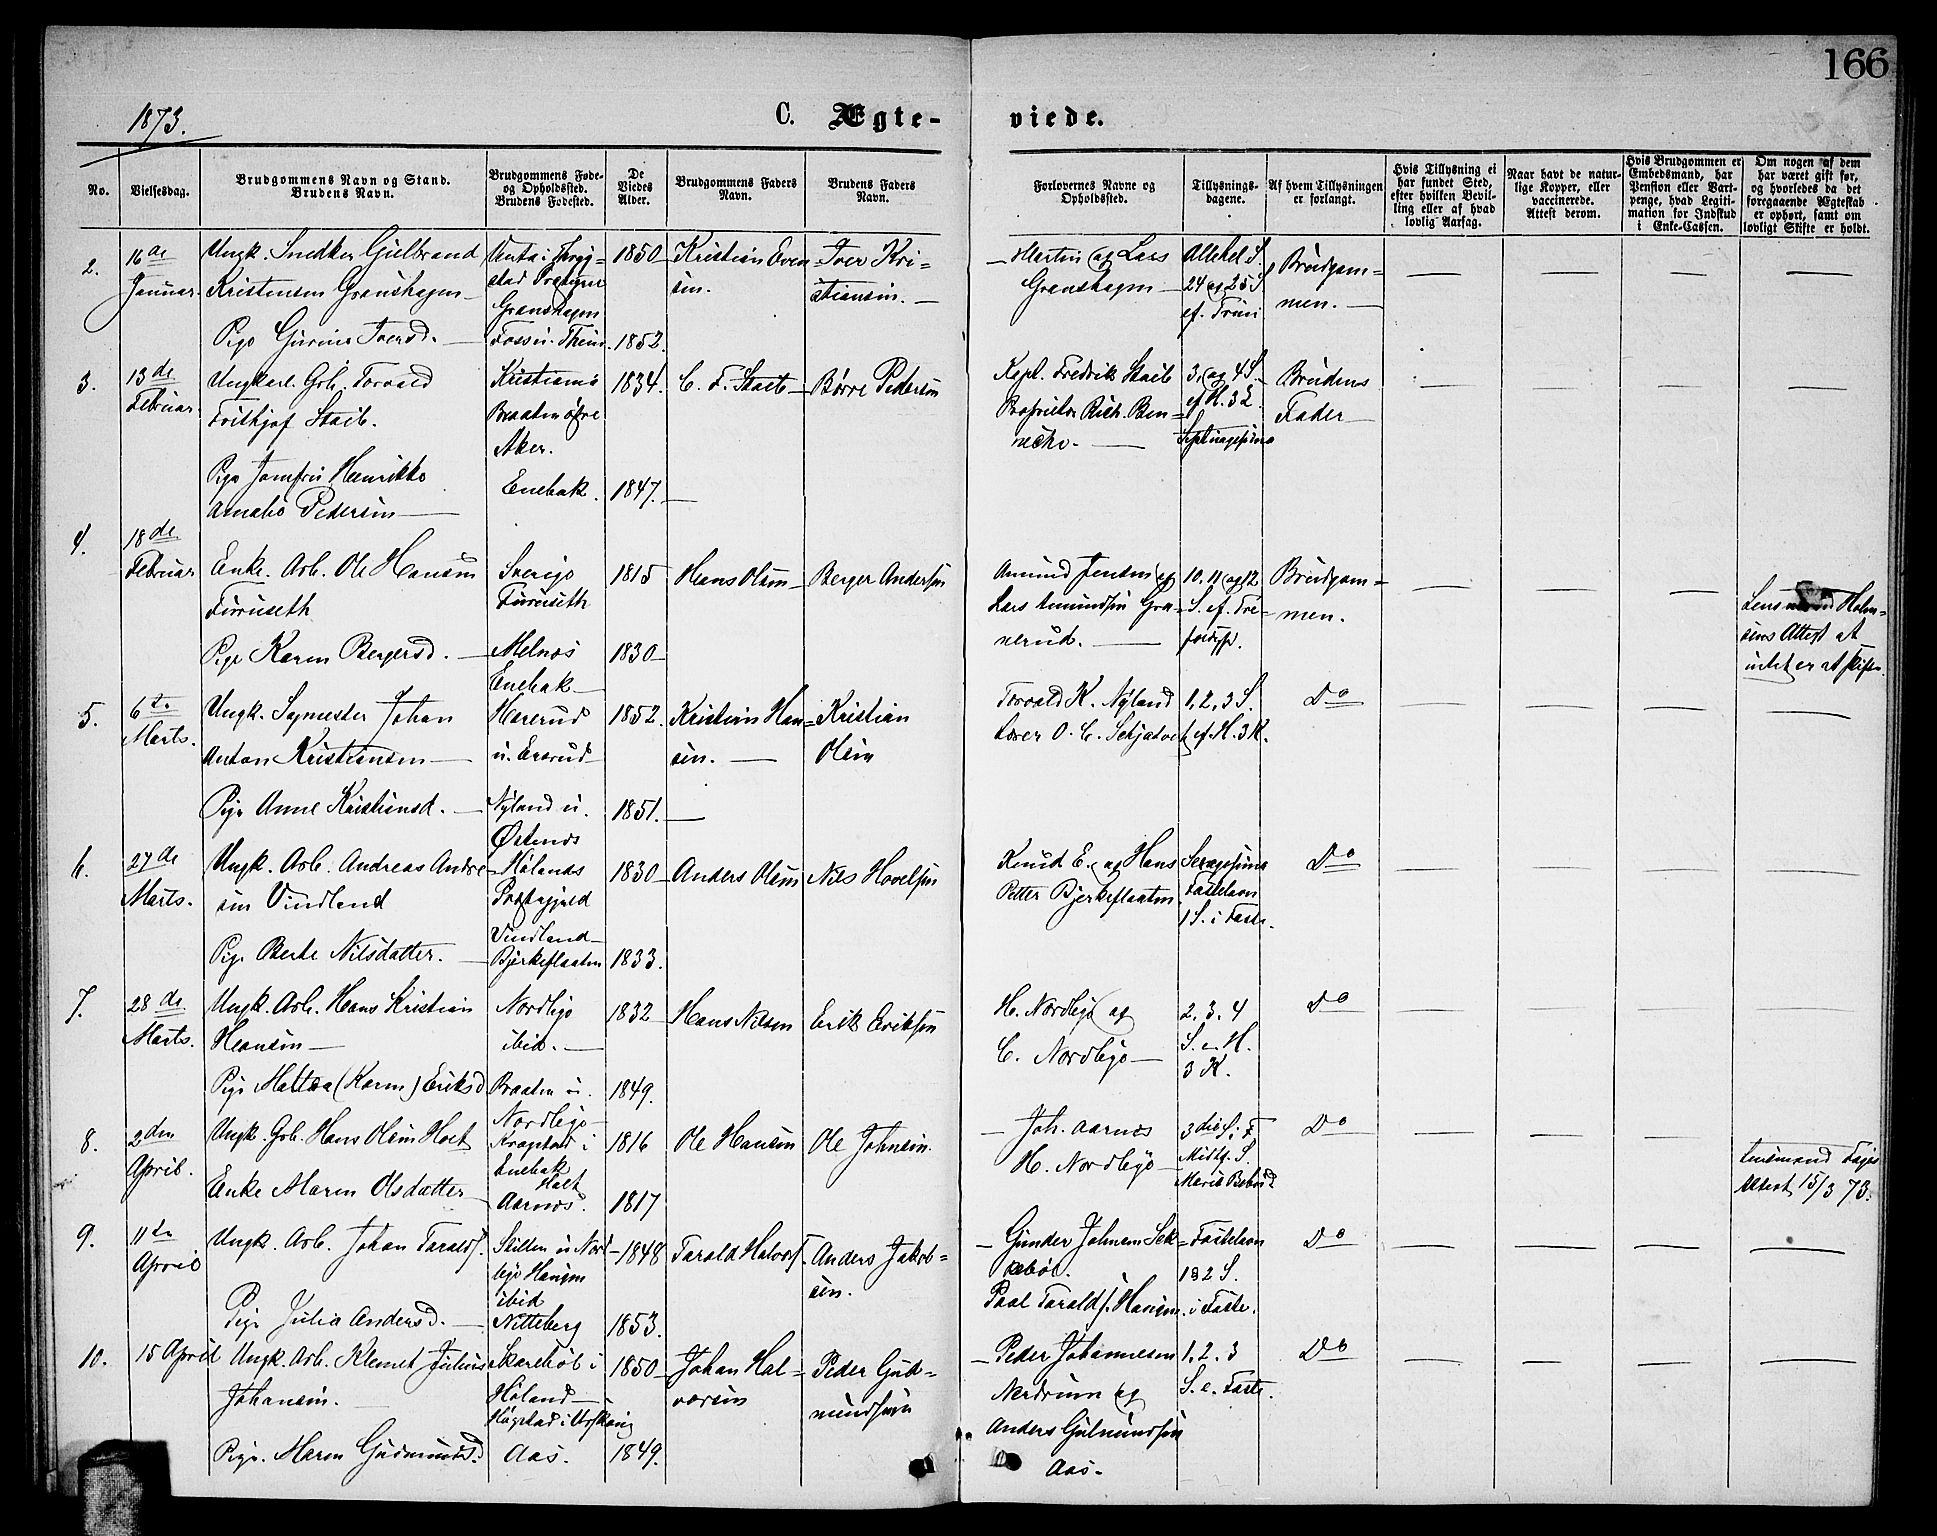 166
1873.
C. Ægte- viede.
No.
Vielsesdag.
Brudgommens Navn og Stand.
Brudens Navn.
Brudgommens Føde-
og Opholdssted.
Brudens Fødested.
De
Viedes
Alder.
Brudgommens Faders
Navn.
Brudens Faders
Navn.
Forlovernes Navne og
Opholdssted.
Tillysnings-
dagene.
Af hvem Tillysningen
er forlangt.
Hvis Tillysning ei
har fundet Sted,
efter hvilken Bevil-
ling eller af hvad
lovlig Aarsag.
Naar havt de natur-
lige Kopper, eller
vaccinerede.
Attest derom.
Hvis Brudgommen er
Embedsmand, har
Pension eller Vart-
penge, hvad Legiti-
mation for Indskud
i Enke-Cassen.
Om nogen af dem
har været gift før,
og hvorledes da det
foregaaende Ægteskab
er ophørt, samt om
lovligt Skifte er holdt.
2.
16de
Januar.
Ungk. Snedker Gulbrand
Kristensen Granshagen
Pige Gurine Iversd.
Granshagen
1850
1852.
Kristian Even-
sen.
Iver Kri-
stiansen.
Martin og Lars
Granshagen
24 og 25 S.
ef. Trini
Brudgom-
men.
3.
13de
Februar.
Ungkarl. Gb. Torvald
Frithjof Staib.
Pige Jomfru Henrikke
Amalie Pedersen
Kristiania
Braaten øvre
Aker.
Enebak.
1834.
1847.
C. F. Staib
Børre Pedersen
Kapt. Fredrik Staib
Proprietær Rich. Ben-
neche.
3. og 4 S.
ef H. 3 K.
Septuagesima
Brudens
Fader
4.
18de
Februar
Enke. Arb. Ole Hansen
Furuseth
Pige Karen Bergersd.
Sverige
Furuseth
Melnes
Enebak
1815
1830
Hans Olsen
Berger Andersen
Amund Jensen og
Lars Amundsen Gra-
nerud.
10. 11 og 12
S. ef. Tre-
foldigh.
Brudgom-
men.
Lensmand Holm-
sens Attest at
intet er at skifte.
5.
6te
Marts.
Ungk. Sagmester Johan
Anton Kristiansen
Pige Anne Kristiansd.
Hærerud
u. Ersrud
Nyland u.
Østenes
1852.
1851.
Kristian Han-
sen.
Kristian
Olsen
Torvald K. Nyland
Lærer O. C. Sekjatvet
1, 2, 3 S.
ef. H. 3 K.
Do
6.
27de
Marts.
Ungk. Arb. Andreas Andre-
sen Vindland
Pige Berte Nilsdatter.
Hølands
Præstegjeld
Vindland
Bjerkeflaaten
1830
1833.
Anders Olsen
Nils Hovelsen
Knud E. og Hans
Petter Bjerkeflaaten
Sexagesima
Fastelavn
1 S. i Faste.
Do
7.
28de
Marts.
Ungk. Arb. Hans Kristian
Hansen
Pige Mattea (Karen) Eriksd
Nordbye
ibid.
Braaten u.
Nordbye
1832
1849.
Hans Nilsen
Erik Eriksen
H. Nordbye og
C. Nordbye
2. 3. 4
S. e. H.
3 K.
Do
8.
2den
April.
Ungk. Gb. Hans Olsen Holt
Enke Maren Olsdatter
Kragstad i
Enebak
Holt
Aarnes.
1816
1817
Ole Hansen
Ole Johnsen.
Joh. Aarnes
H. Nordbye
3die S. i F.
Midf. S.
Mariæ Bebud.
Do
Lensmand Fajes
Attest 15/3 73.
9.
11te
April
Ungk. Arb. Johan Taralds.
Pige Julia Andersd.
Skilten u Nord-
bye Hansen
ibid
Nitteberg
1848
1853.
Tarald Halvors.
Anders Jakob-
sen.
Gunder Johnsen Sek-
kebøl.
Paal Taralds. Hansen
Fastelavn
1 & 2 S.
i Faste.
Do
10.
15 April
Ungk. Arb. Klemet Julius
Johansen.
Pige. Maren Gudmundsd.
Skarebøl i
Høland
Høgstad i Urskoug
Aas.
1850
1849.
Johan Hal-
vorsen
Peder Gud-
mundsen
Peder Johannesen
Nerdrum og
Anders Gulmundsen
Aas.
1. 2. 3
S. e. Faste.
Do